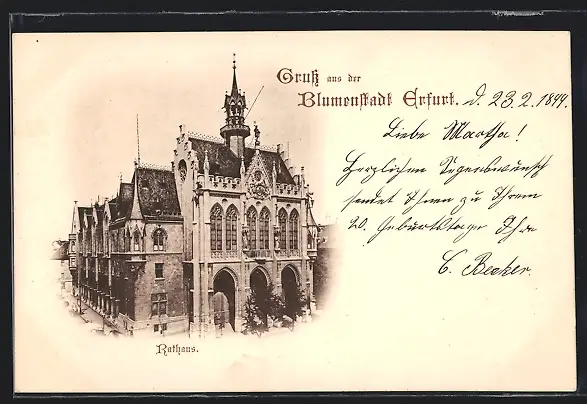 Gruß aus der
Blumenstadt Erfurt. d. 23.2.1899.
Liebe Martha!
Herzlichen Segenswunsch
sendet Ihnen zu Ihrem
20. Geburtstage Ihre
C. Becker.
Rathaus.